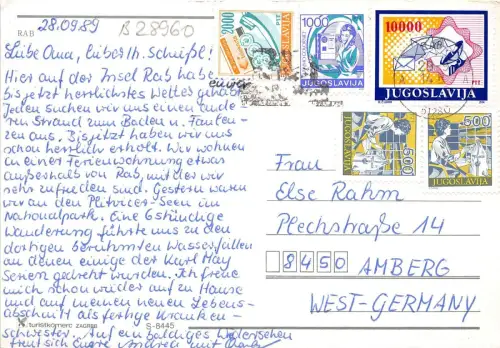 28.09.89
B 28960
RAB
Liebe Oma, lieber H. Schießl!
Hier auf der Insel Rab habe
bis jetzt herrlichstes Wetter gehabt
Jeden suchen wir uns einen ande
ren Strand zum Baden u. Faulen-
zen aus. Bis jetzt haben wir uns
schon herrlich erholt. Wir wohnen
in einer Ferienwohnung etwas
außerhalb von Rab, mit der wir
sehr zufrieden sind. Gestern waren
wir an den Plitvicer-Seen im
Nationalpark. Eine 6stündige
Wanderung führte uns zu den
dortigen berühmten Wasserfällen
an denen einige der Karl May
Serien gedreht wurden. Ich freue
mich schon wieder auf zu Hause
und auf meinen neuen Lebens-
abschnitt als fertige Kranken-
schwester. Auf ein baldiges Wiedersehen
freut sich Eure mit
turistkomerc ZAGREB
S-8445
2000
PTT
JUGOSLAVIJA
1000
JUGOSLAVIJA
10000
PTT
JUGOSLAVIJA
500
JUGOSLAVIJA
500
JUGOSLAVIJA
Frau
Else Rahm
Plechstraße 14
8450 AMBERG
WEST-GERMANY